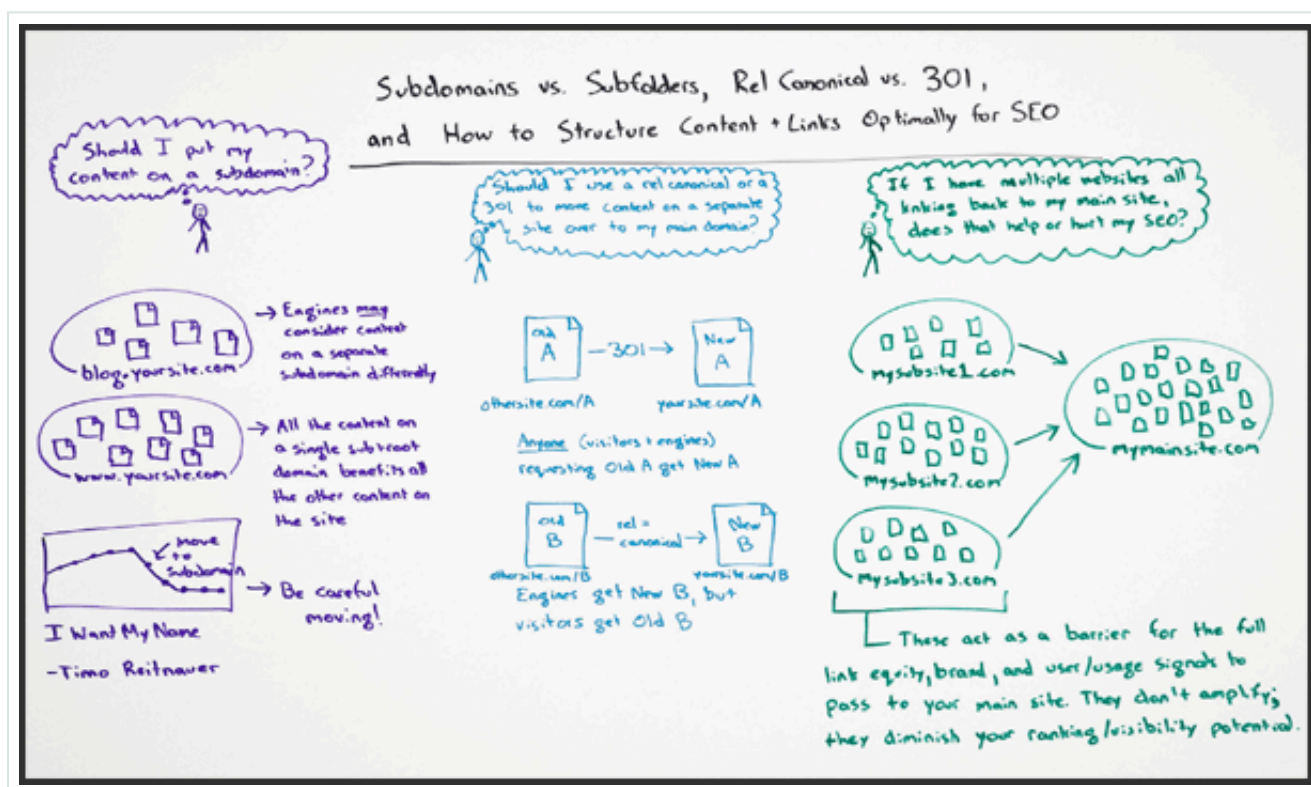 Subdomains vs. Subfolders, Rel Canonical vs. 301,
and How to Structure Content + Links Optimally for SEO
Should I put my
content on a subdomain?
blog.yoursite.com
→ Engines may
consider content
on a separate
subdomain differently
www.yoursite.com
→ All the content on
a single sub+root
domain benefits all
the other content on
the site
move
to
subdomain
→ Be careful
moving!
I Want My Name
-Timo Reitnauer
Should I use a rel canonical or a
301 to move content on a separate
site over to my main domain?
Old
A
—301→
New
A
othersite.com/A
yoursite.com/A
Anyone (visitors + engines)
requesting Old A get New A
Old
B
rel=
canonical→
New
B
othersite.com/B
yoursite.com/B
Engines get New B, but
visitors get Old B
If I have multiple websites all
linking back to my main site,
does that help or hurt my SEO?
mysubsite1.com
mysubsite2.com
mysubsite3.com
mymainsite.com
These act as a barrier for the full
link equity, brand, and user/usage signals to
pass to your main site. They don't amplify;
they diminish your ranking/visibility potential.